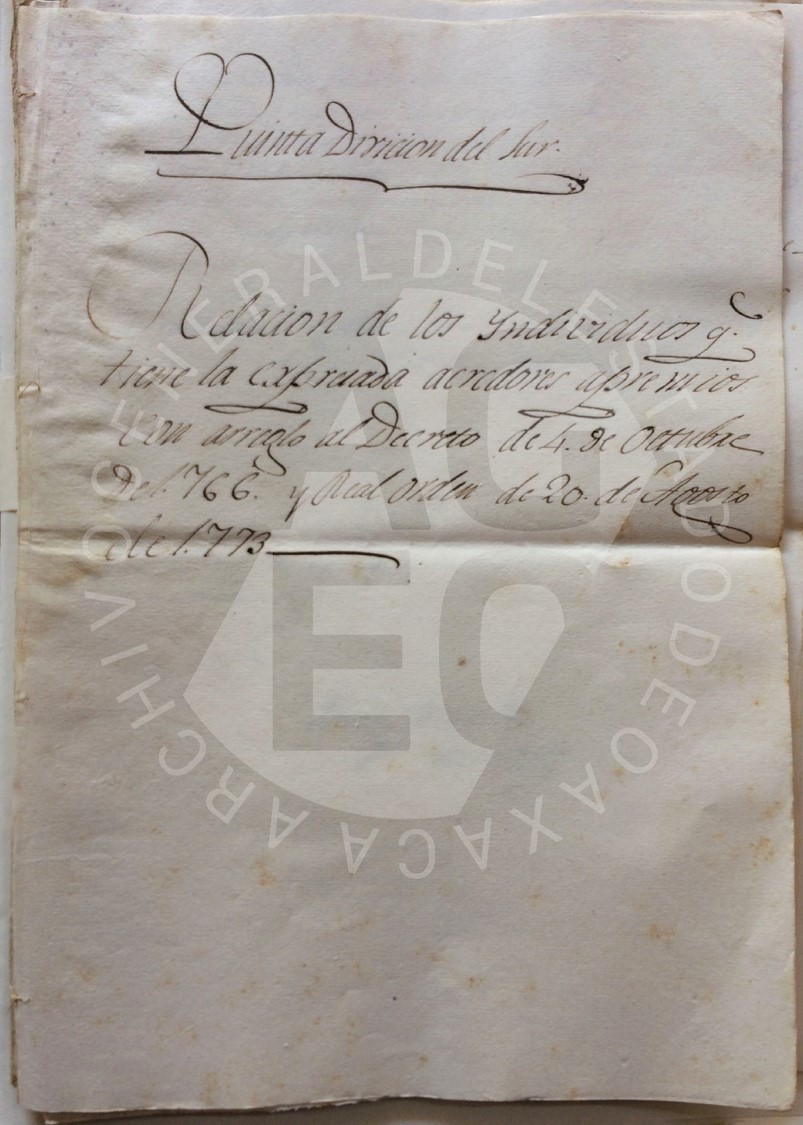 Quinta Division del Sur.
Relacion de los Yndividuos q.
tiene la expresada acredores apremios
con arreglo al Decreto de 4. de Octubre
de 1.766. y Real orden de 20. de Agosto
de 1.773
ARCHIVO GENERAL DEL ESTADO DE OAXACA
AGEO